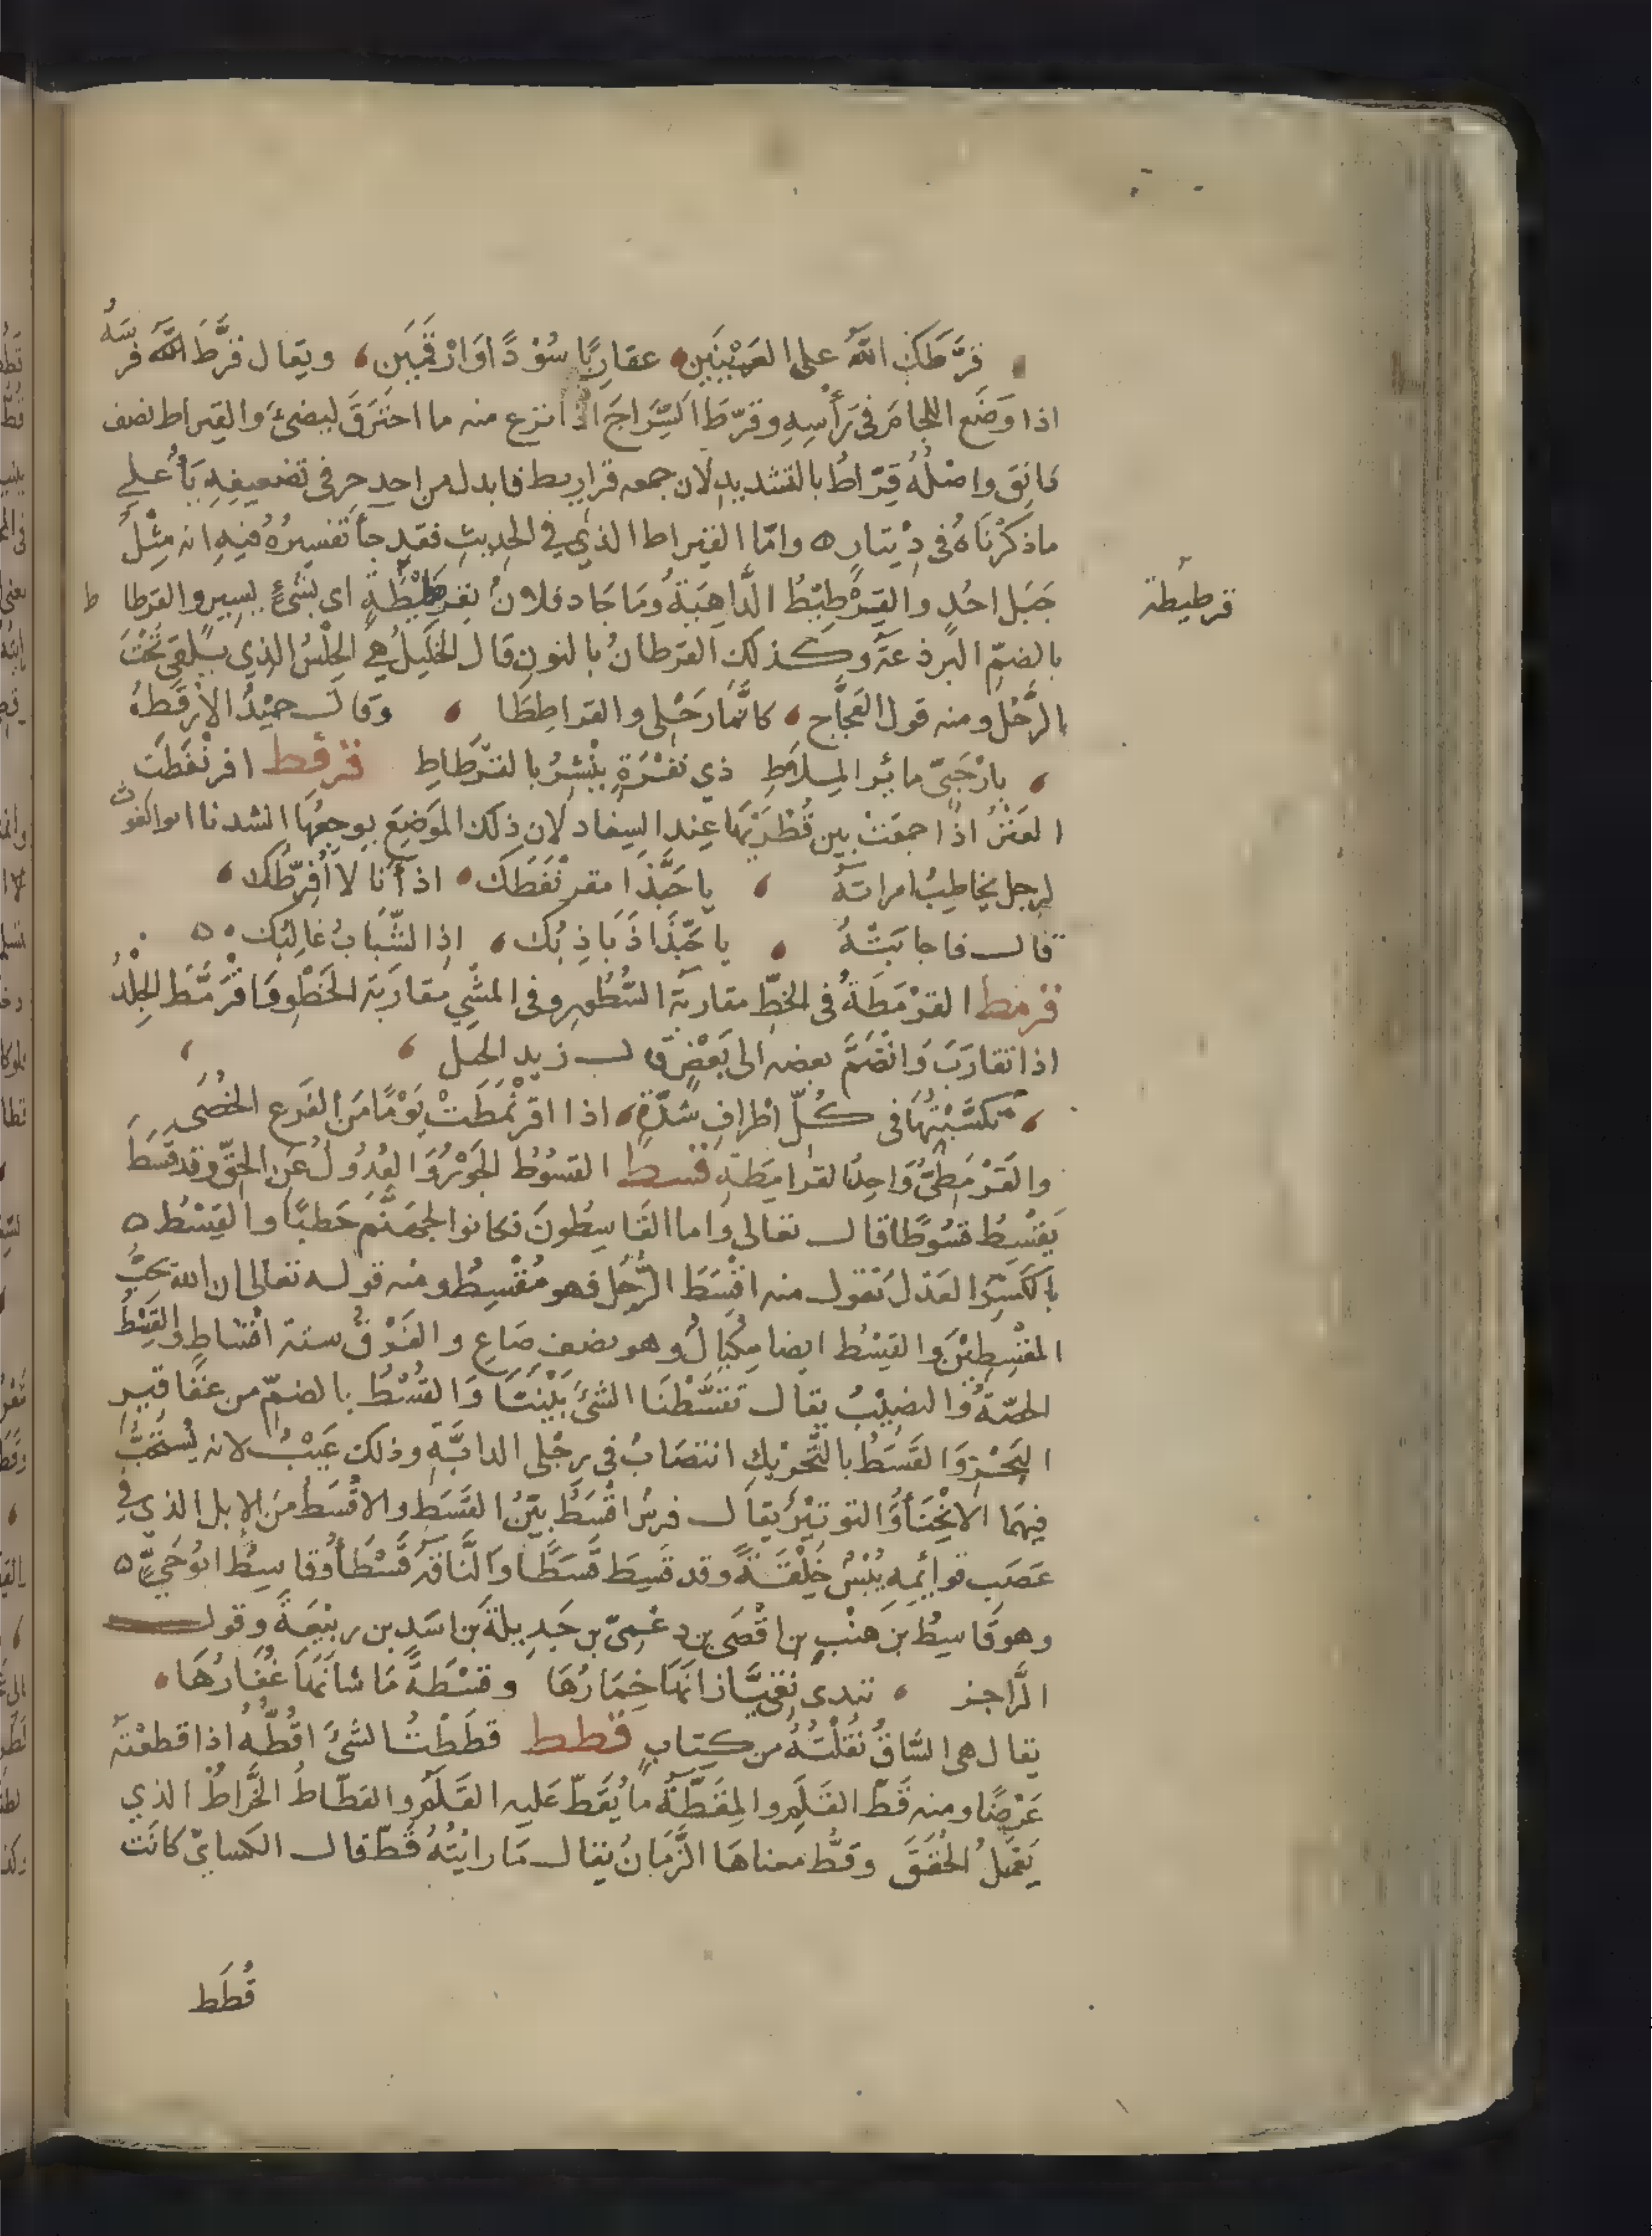 قَرَّطَكِ اللّٰهُ على العَيْنَيْنِ، عقاربًا سُوْدًا وَارْقَمَيْنِ، ويقال قَرَّطَ اللّٰه فَرسَهُ
اذا وَضَعَ اللجامَ فى رَأْسِهِ وقرّطَ السِّرَاجَ اذا نزع منه ما احتَرَقَ ليضئَ والقيراط نصف
دَانِق واصْلُهُ قِرّاطٌ بالتشديد لان جمعه قراريط فابدل من احد حرفى تضعيفه يَاءً على
ماذكَرْنَاهُ فى دِيْنَار ٥ وامّا القيراط الذي في الحديث فقد جاء تفسيرُهُ فيهِ انه مِثْلُ
جَبَل احُدٍ والقِرْطِيْطُ الدَّاهِيَةُ ومَا جَادَ فلانٌ بقِرطِيْطَةٍ اى بشئٍ يسيرٍ والقرطا ط
قرطيطة
بالضمّ البرذعَةُ وكذلك القرطانُ بالنون قال الخَليلُ هى الحِلْسُ الذي يُلقى تَحْتَ
الرَّحْل ومنه قول العَجَّاج، كانَّما رَحْلى والقراطِطَا ، وقال حميْدُ الأرْقَطُ
، بارْحَبىّ مائر المِلاَطِ ذي زفْرَةٍ يَنْشُرُ بالقِرْطاطِ قرفط اقرنْفَطَتِ
العَنْزُ اذا جمعَتْ بين قُطْرَيْهَا عِند السِفاد لان ذلك المَوضِعَ يوجعُهَا انشدنا ابوالغوث
لرجل يخاطِبُ امراتَهُ ، يا حَبَّذَا مقرنْفَطُك، اذ اَنَا لا اُفرّطُك،
قال فاجابَتْهُ ، يا حَبَّذَا ذَبَاذِبُك، اذِ الشَّبَابُ غالِبُك، ٥
قرمط القرْمَطَةُ فى الخطّ مقاربَة السُّطُور وفى المَشْي مقاربَة الخَطْوِ وَاقْرَمَّطَ الجِلْدُ
اذا تقارَبَ وَانْضَمَّ بعضه الى بَعْضٍ قال زيد الخيل ،
، تكسَّبْتُهَا فى كُلّ اطْرافِ شدَّةٍ، اذا اقرَنْمَطَتْ يَوْمًا مِنَ الفَزَع الخُصَى
والقَرْمَطِىُّ وَاحِدُ القرامِطَةِ قسط القسُوْطُ الجَوْرُ وَالعُدُولُ عَنِ الحَقّ وقد قَسَطَ
يَقْسِطُ قسُوطًا قال تعالى وَاما القَاسِطُونَ فكانوا لجهنَّمَ حَطبًا والقِسْطُ ٥
بالكَسْرِ العَدْل تقول منه اقْسَطَ الرَّجُل فهو مُقْسِطٌ ومنه قوله تعالى ان الله يحبُّ
المقْسِطِيْنَ والقِسْط ايضا مِكْيَالٌ وهو نصف صَاعٍ والفَرْقُ ستة اقْسَاطٍ والقِسْطُ
الحصّةُ والنصِيْبُ يقال تقسَّطْنَا الشئَ بَيْنَنَا وَالقُسْطُ بالضمّ من عَقَاقير
البَحْرِ وَالقَسَطُ بالتَّحْريكِ انتصَابٌ فى رِجْلى الدابَّةِ وذلك عَيْبٌ لانه يُسْتَحَبُّ
فِيهَمَا الانْحِنَاءُ وَالتوتيْرُ يقال فرسٌ اقْسَطُ بيّنُ القَسَطِ والاقْسَطُ مِنَ الإبل الذي في
عَصَبِ قوائمِه يُبْسٌ خِلْقَةً وقد قَسِطَ قَسَطًا وَالنَّاقَة قَسْطَاءُ وقاسِطٌ ابوُ حَيٍّ ٥
وهو قَاسِطُ بن هنْبِ بن اقْصَى بن دعْمِىّ بن جَدِيلةَ بن اسَدِ بن ربيْعَةَ وقول
الرَّاجز ، تبدى نقيًّا زانَهَا خِمَارُهَا وقسْطَةً مَا شانَهَا غُفَارُهَا،
يقال هى السَّاقُ نَقَلْتُهُ من كِتابٍ قطط قطَطْتُ الشئَ اقُطُّهُ اذا قطعْتَهُ
عَرْضًا ومنه قَطّ القَلَمِ والمِقَطَّةُ ما يُقَطّ عَليه القَلَم والقطّاطُ الخَرَّاطُ الذي
يَعْمَلُ الحُقَقَ وقَطُّ معناهَا الزَّمَانُ يقال مَا رايْتُهُ قَطّ قال الكسائىّ كانَت
قُطَط